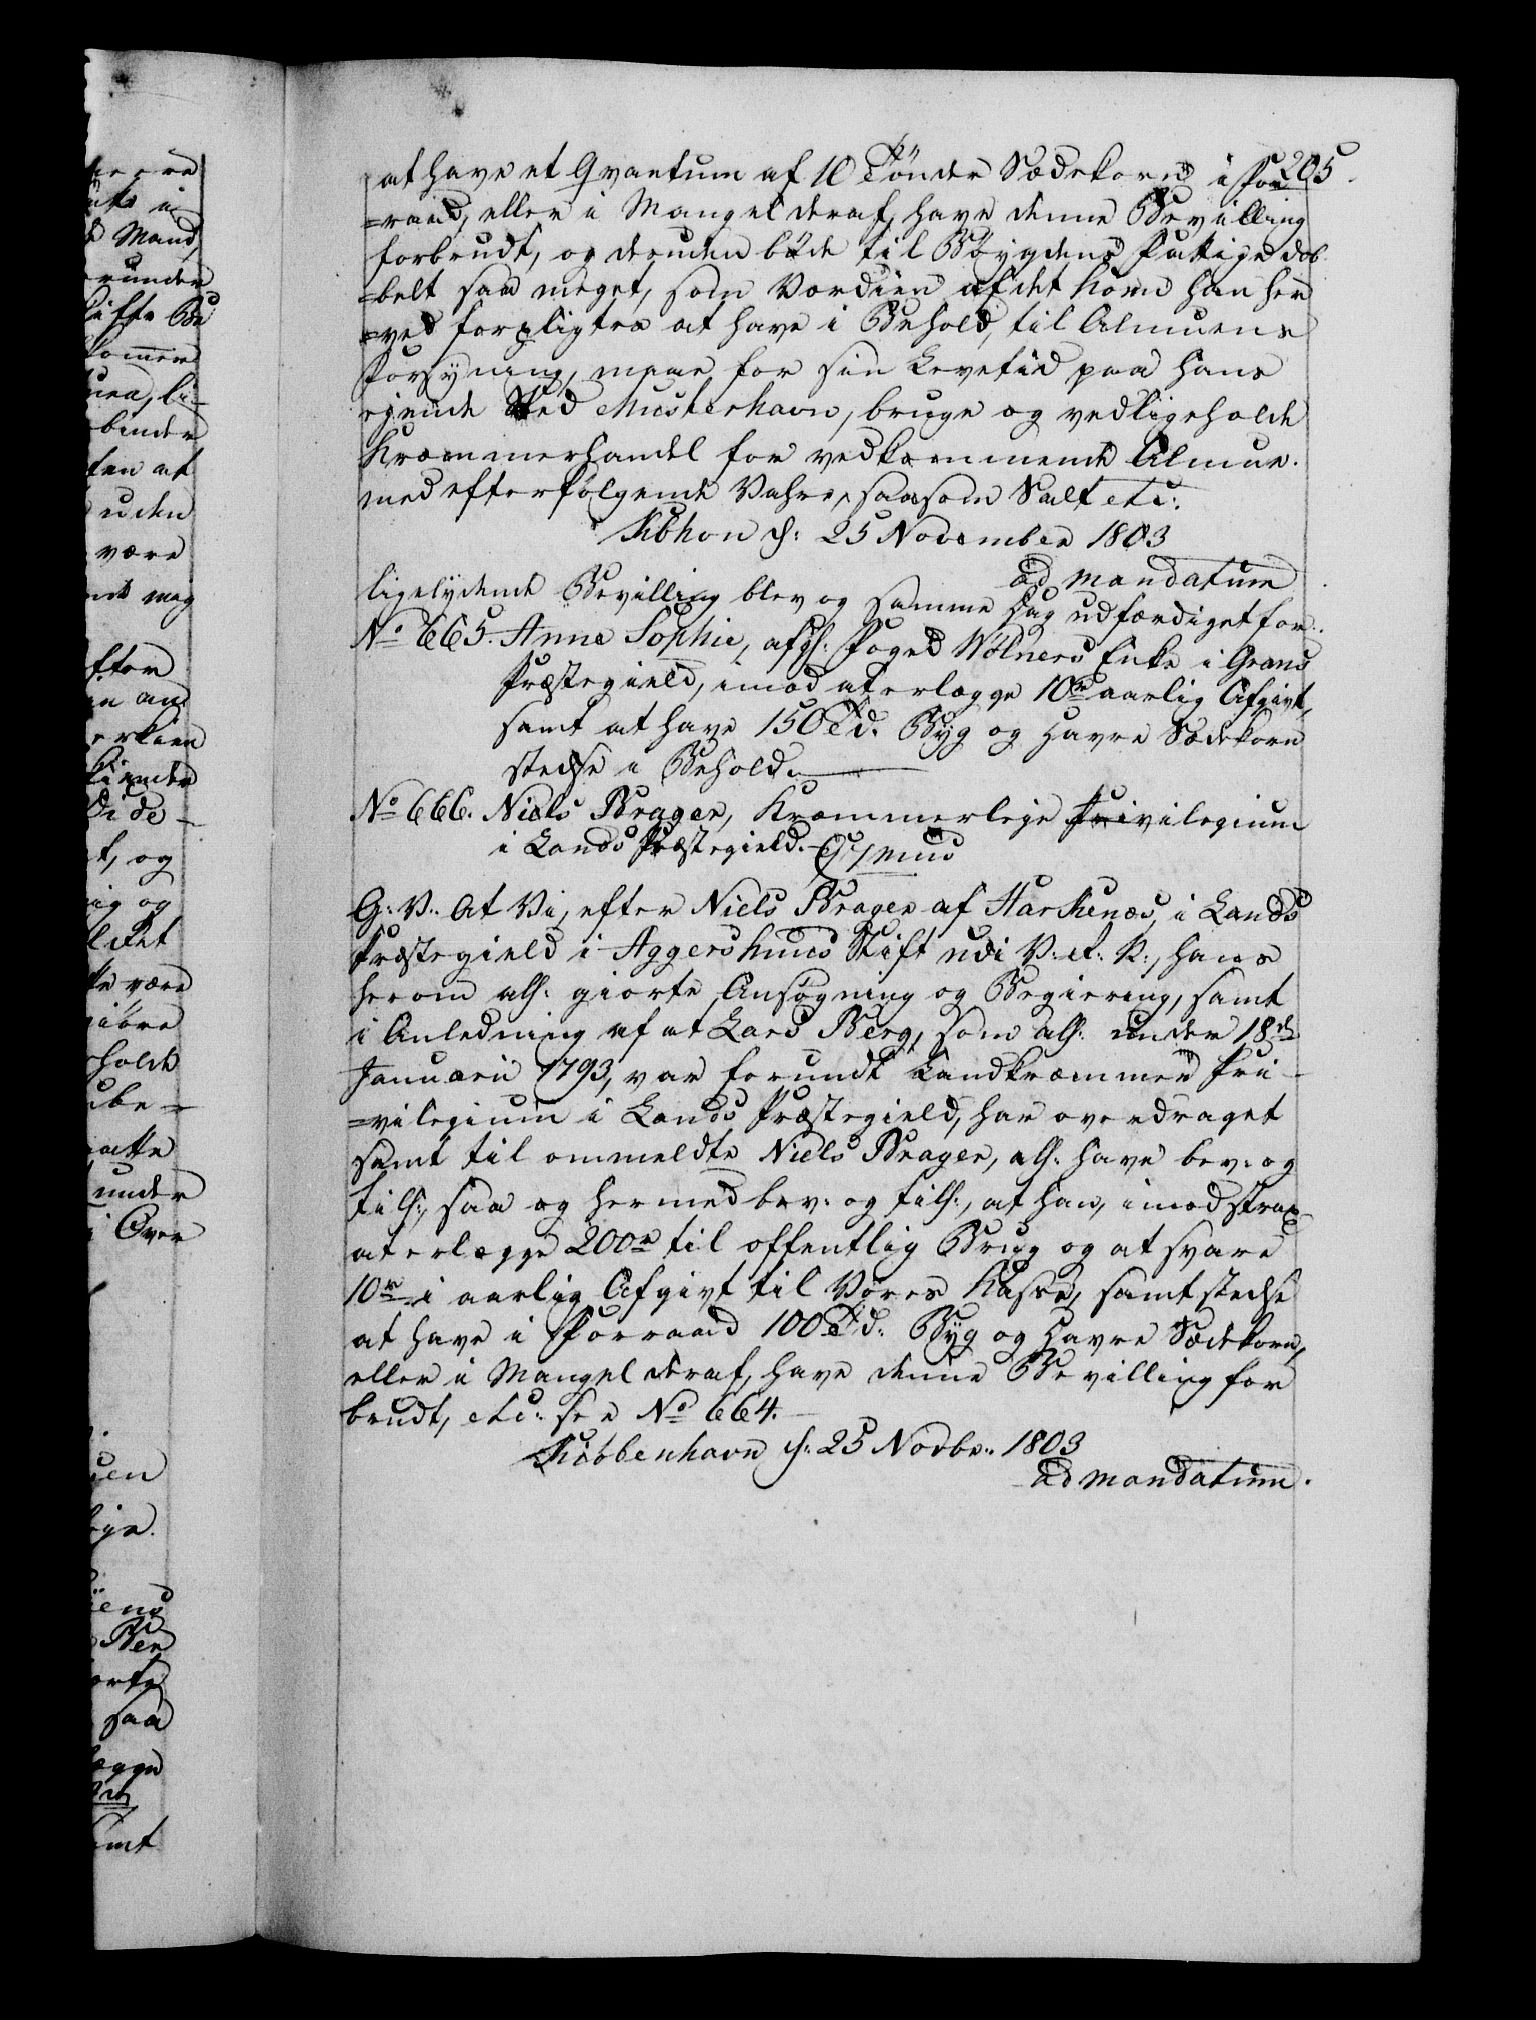 205.
at have et Qvantum af 10 Tönder Sædekorn i For-
=raad, eller i Mangel deraf, have denne Bevilling
forbrudt, og desuden böde til Böygdens Fattige dob-
=belt saa meget, som Værdien af det Korn han her
=ved forpligtes at have i Behold, til Almuens
Forsyning, maae for sin Levetid paa hans
ejende Sted Musterhavn, bruge og vedligeholde
Kræmmerhandel for vedkommende Almue.
med efterfølgende Vahre, saasom Salt etc:
Kbhvn d: 25 November 1803
ad mandatum
ligelydende Bevilling blev og samme Dag udfærdiget for:
No 665. Anne Sophie, afg: Foged Wölners Enke i Grans
Præstegield, imod at erlægge 10 rd aarlig Afgivt,
samt at have 150 Td. Byg og Havre Sædekorn
stedse i Behold.
No 666. Niels Brager, Kræmmerleje Privilegium
i Lands Præstegield.
G: V: At Vi, efter Niels Brager af Harkenæs, i Lands
Præstegield i Aggershuus Stift udi V: et: R:, hans
herom all: giorte Ansøgning og Begiering, samt
i Anledning af at Lars Berg, som all: under 18de
Januarii 1793, var forundt Landkræmmer Pri-
=vilegium i Lands Præstegield, har overdraget
samt til ommeldte Niels Brager, all: have bev: og
till:, saa og hermed bev: og till:, at han, imod strax
at erlægge 200 rd til offentlig Brug og at svare
10 rd i aarlig Afgivt til Vores Kasse, samt stedse
at have i Forraad 100 Td: Byg og Havre Sædekorn,
eller i Mangel deraf, have denne Bevilling for
brudt, etc: see No 664.
Kiöbbenhavn d: 25 Novbr: 1803
ad mandatum.